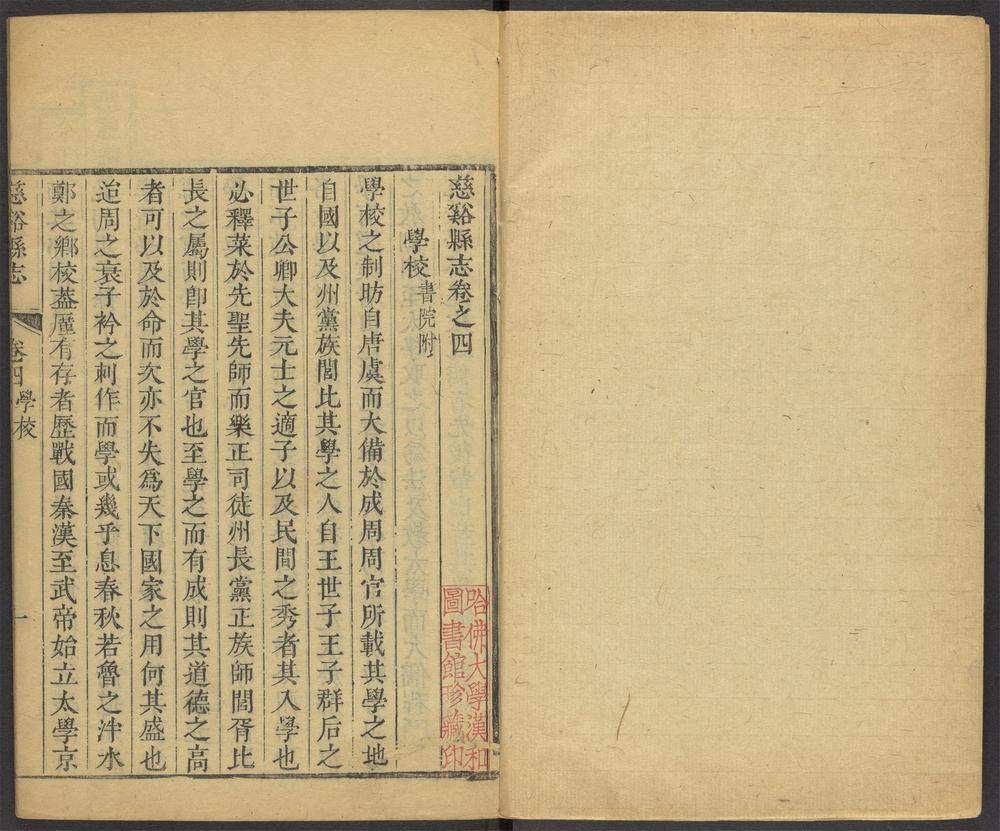 慈谿縣志卷之四
學校書院附
學校之制昉自唐虞而大備於成周周官所載其學之地
自國以及州黨族閭比其學之人自王世子王子群后之
世子公卿大夫元士之適子以及民間之秀者其入學也
必釋菜於先聖先師而樂正司徒州長黨正族師閭胥比
長之屬則即其學之官也至學之而有成則其道德之高
者可以及於命而次亦不失爲天下國家之用何其盛也
迨周之衰子衿之刺作而學或幾乎息春秋若魯之泮水
鄭之鄕校葢厪有存者歷戰國秦漢至武帝始立太學京
慈谿縣志
卷四
學校
一
哈佛大學漢和
圖書館珍藏印